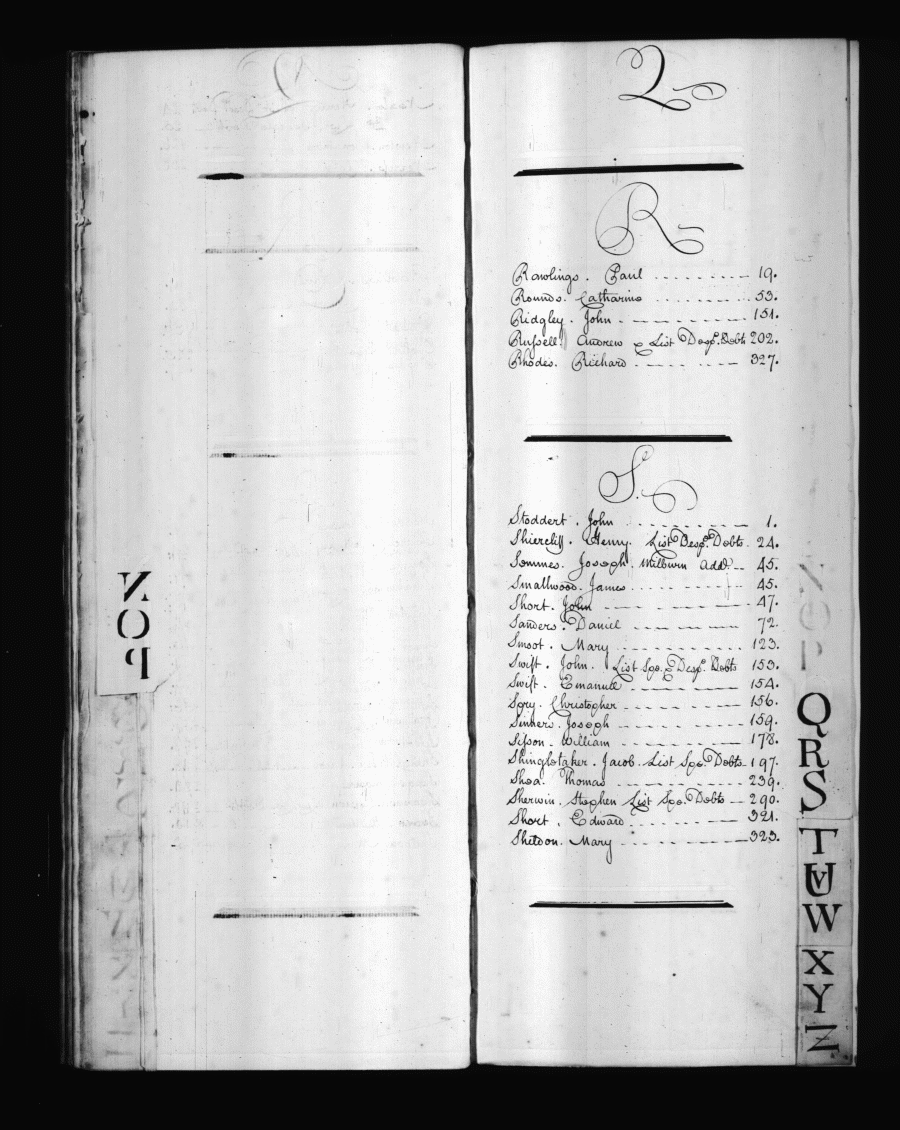 N
O
P
Q
R
Rawlings. Paul 19.
Rounds. Catharine 53.
Ridgley. John 151.
Russell Andrew List Desp. Debts 202.
Rhodes. Richard 327.
S.
Stoddert. John 1.
Shiercliff. Henry. List Desp. Debts 24.
Semmes. Joseph Milburn add. 45.
Smallwood. James 45.
Short. John 47.
Sanders. Daniel 72.
Smoot. Mary 123.
Swift. John. List Spe. & Desp. Debts 153.
Swift. Emanuel 154.
Spry. Christopher 156.
Sinners. Joseph 159.
Sisson. William 178.
Shingletaker. Jacob. List Spe. Debts 197.
Shea. Thomas 239.
Sherwin. Stephen List Spe. Debts 290.
Short. Edward 321.
Sheldon. Mary 323.
Q
R
S
T
UV
W
X
Y
Z